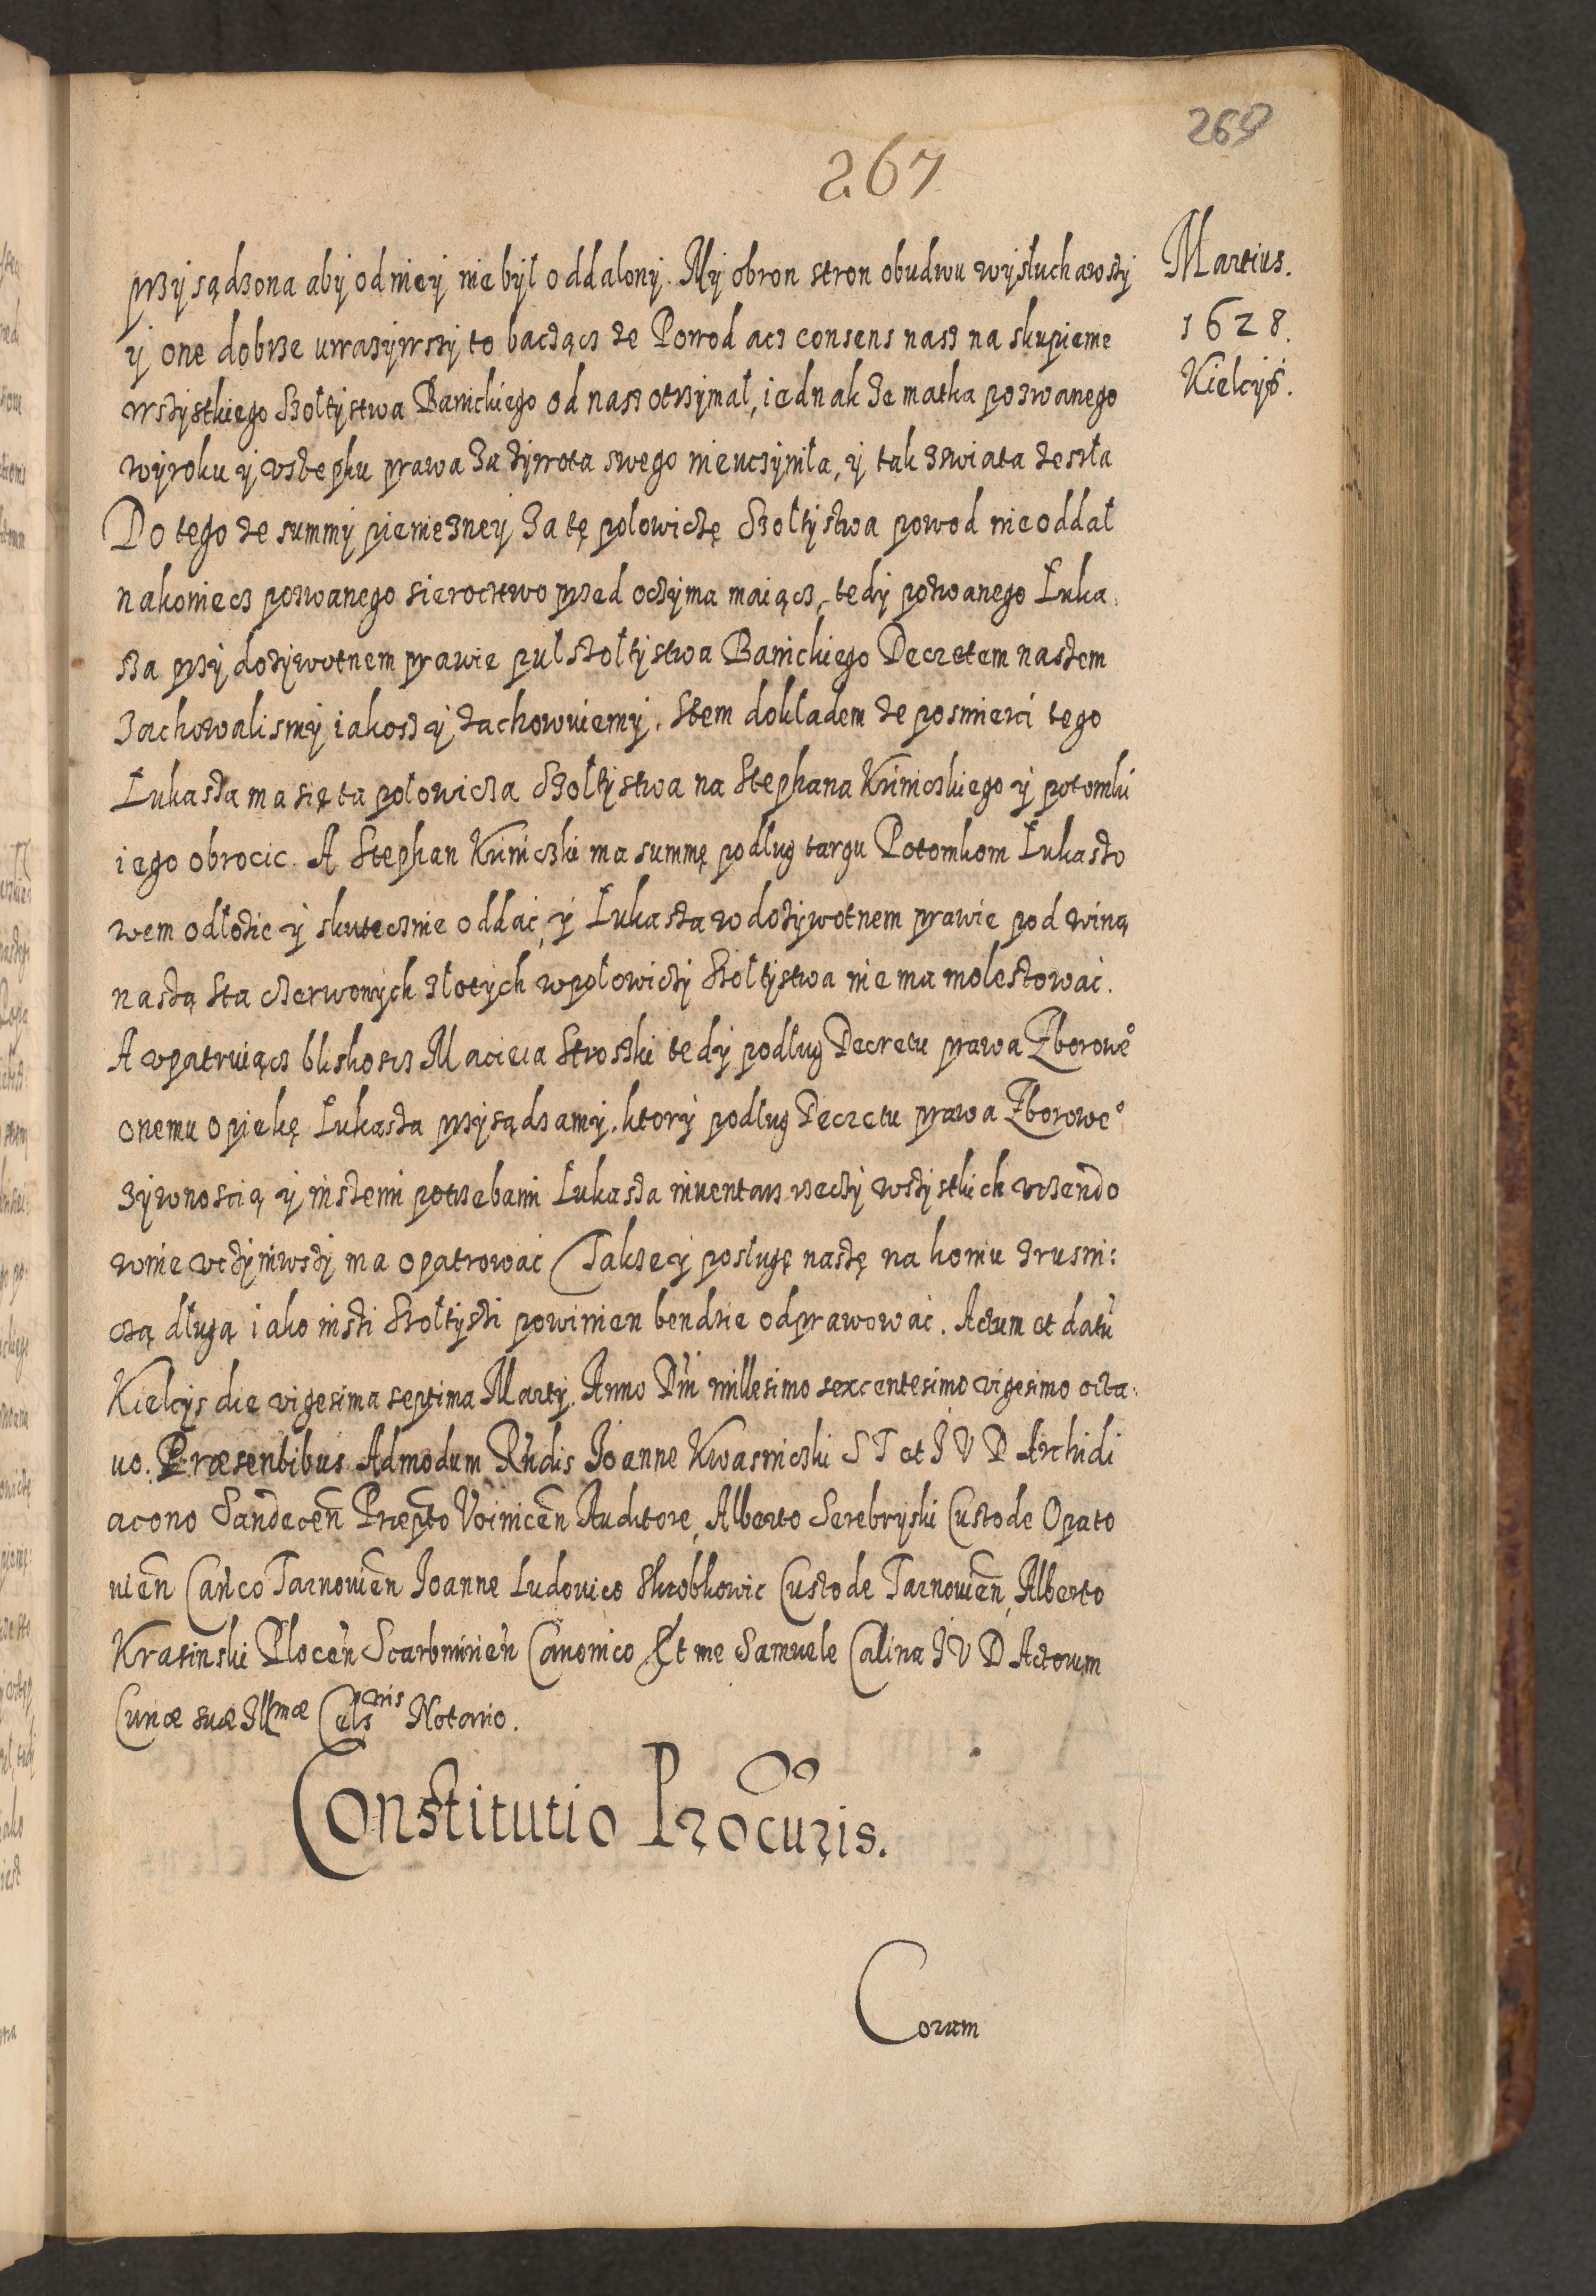 269
267
Martius.
1628.
Kielcys.
przysądzona aby od niey nie był oddalony. My obron stron obudwu wysłuchawszy
y one dobrze uwazywszy to bacząc ze Powod acz consens nasz na skupienie
wszystkiego Szołtystwa Banickiego od nasz otrzymał, iednak ze matka pozwanego
wyroku y vstępku prawa za zywota swego nieuczyniła, y tak zswiata zeszła
Do tego ze summy pienieżney za tę połowiczę Szołtystwa powod nieoddał
nakoniecz pozwanego sieroctwo przed oczyma maiącz, tedy pozwanego Luka:
sza przy dożywotnem prawie puł szołtystwa Banickiego Decretem naszem
zachowalismy iakosz y zachowuiemy. Stem dokładem ze posmierci tego
Łukasza ma się ta połowicza Szołtystwa na Stephana Krinickiego y potomki
iego obrocic. A Stephan Kriniczki ma summę podług targu Potomkom Łukaszo
wem odłożic y skutecznie oddać, y Łukasza w dożywotnem prawie pod winą
naszą sta czerwonych złotych wpołowiczy Szołtystwa nie ma molestować.
A vpatruiącz bliskoscz Macieia Stroszki tedy podług Decretu prawa Zborowe°
onemu opiekę Łukasza przysądzamy. ktory podług Decretu prawa Zborowe°
zywnoscią y inszemi potrzebami Łukasza inventarz rzeczy wszystkich vrzendo
wnie vczyniwszy ma opatrować Takze y posługę naszę na koniu zrusni:
czą długą iako inszi Szołtyszi powinien bendzie odprawować. Actum et datũ
Kielcys die vigesima septima Marty. Anno Dni millesimo sexcentesimo vigesimo octa:
uo. Præsentibus Admodum Rndis Joanne Kwasniczki S T et J V D Archidi
acono Sandecen Præpto Voinicen Auditore, Alberto Serebryski Custode Opato
uien Canco Tarnouien Joanne Ludouico Skrobkowic Custode Tarnouien, Alberto
Krasinski Plocen Scarbmirien Canonico Et me Samuele Calina J V D Actorum
Curiæ suæ Illmæ Celsnis Notario.
Constitutio Procuris.
Coram